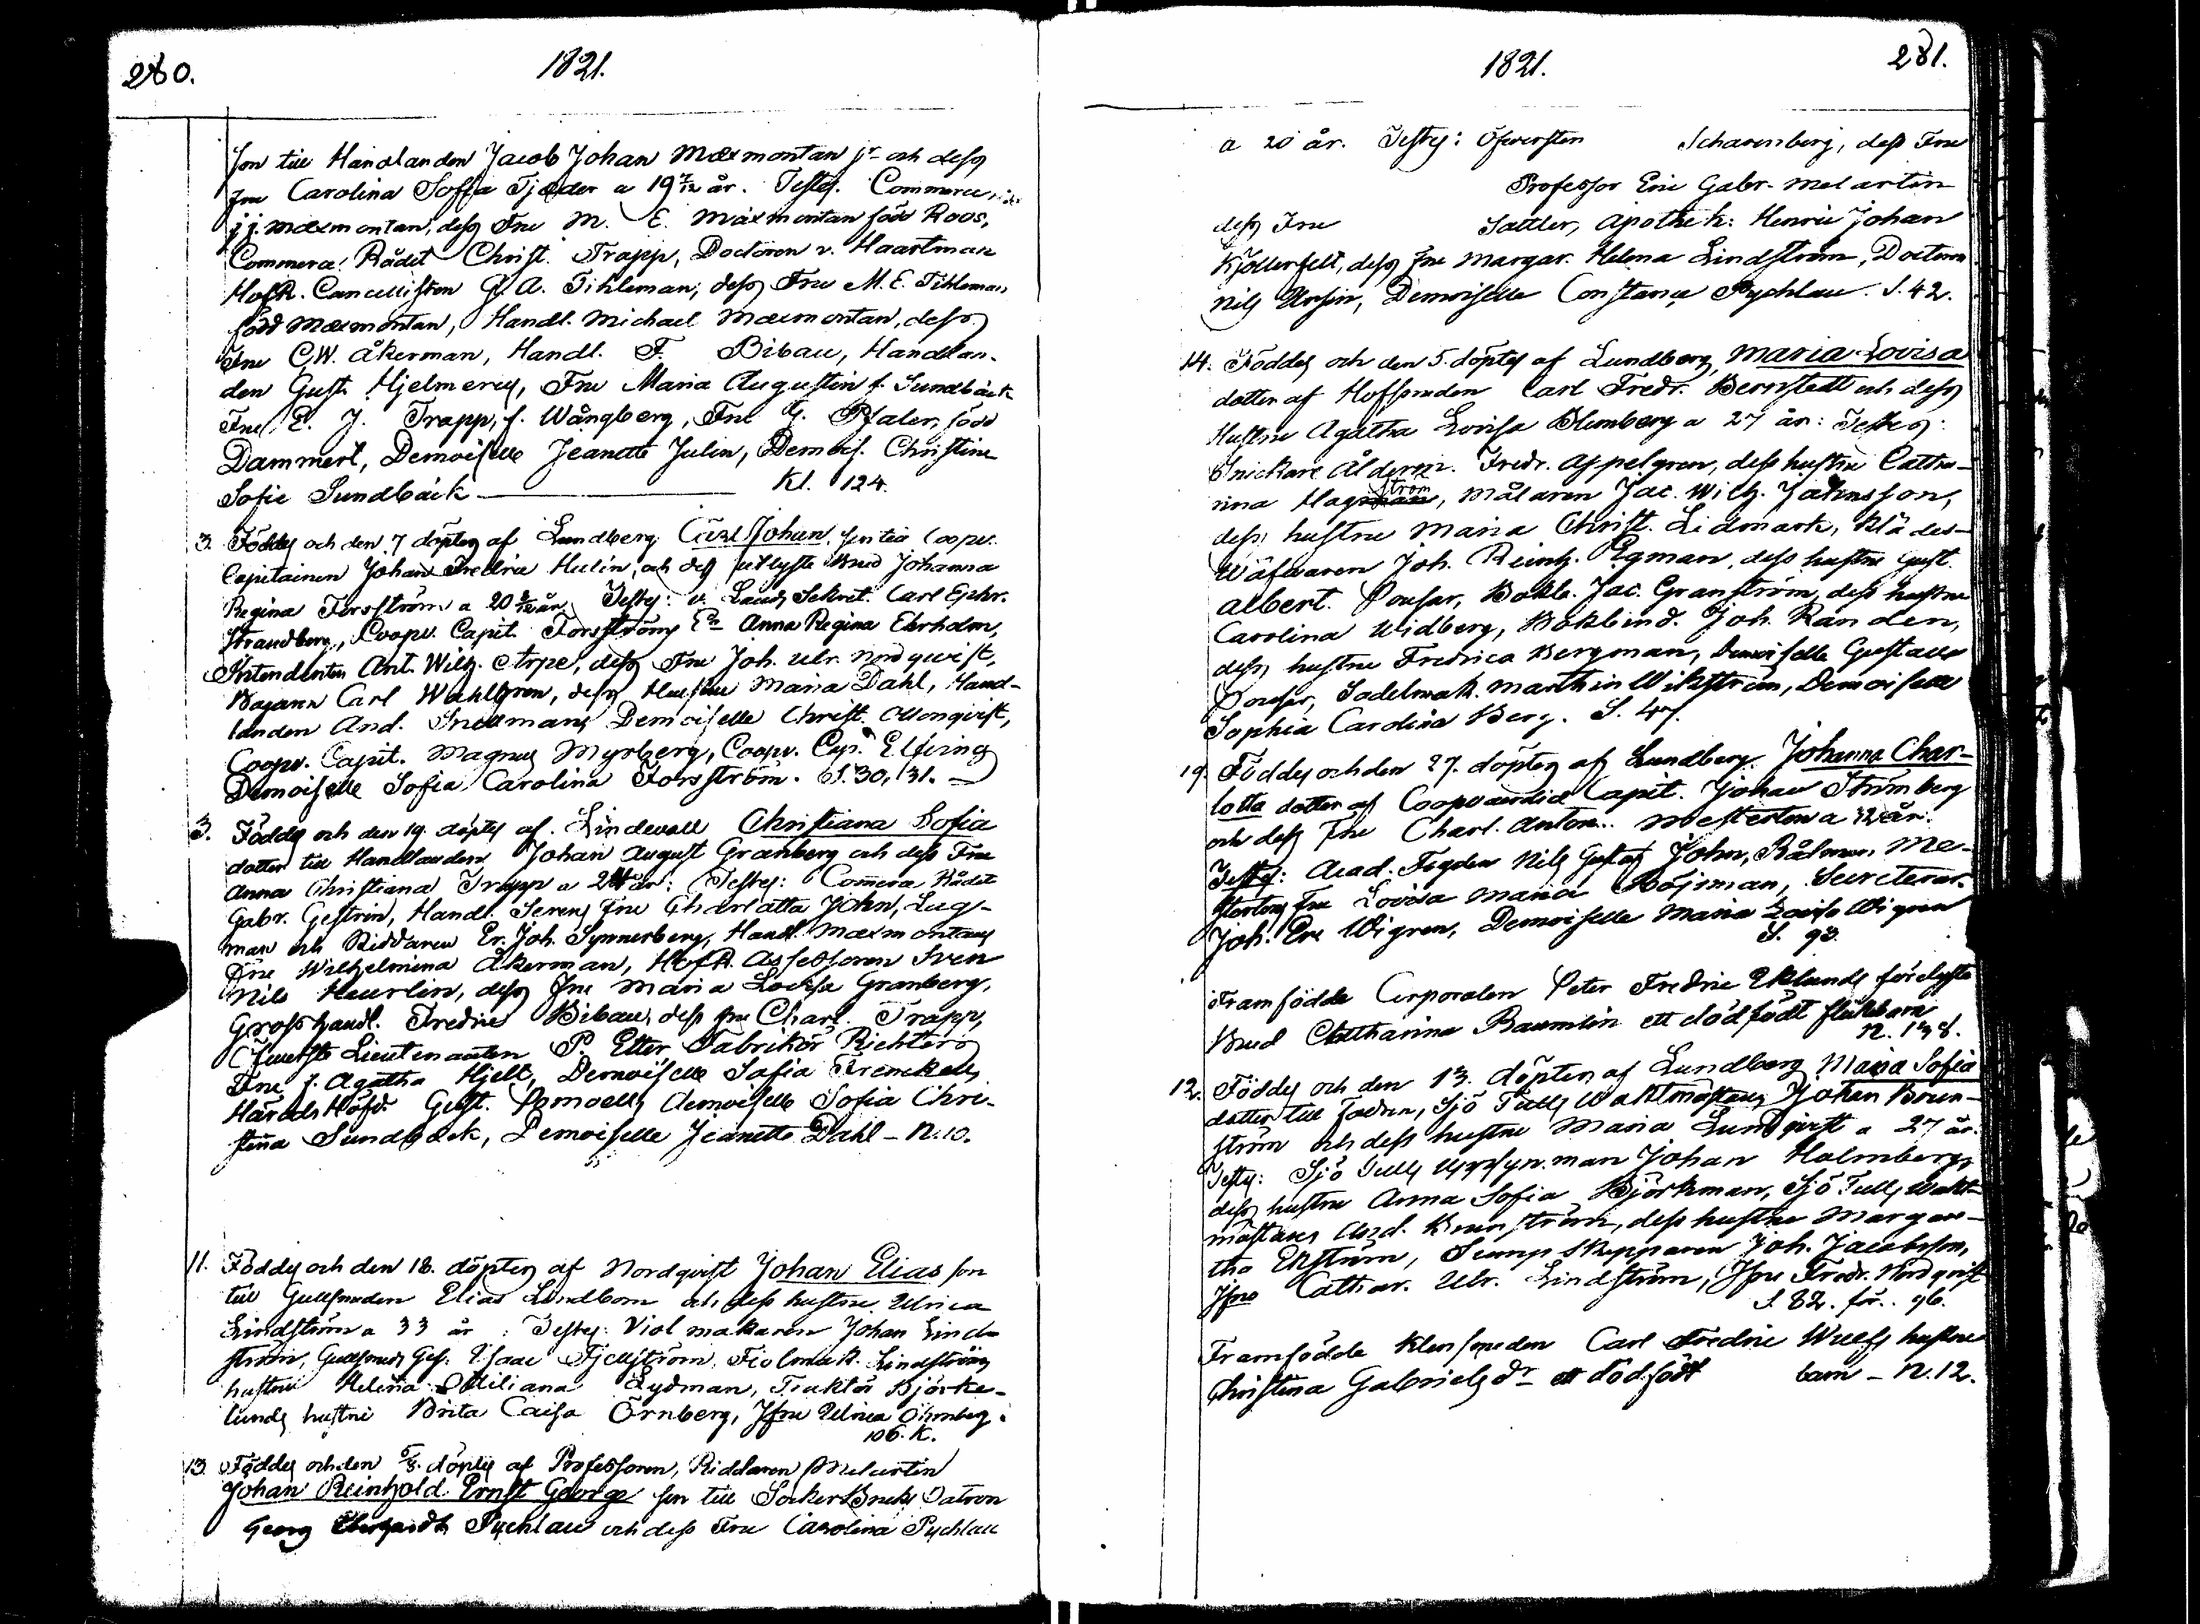 280.
1821.
Son till Handlanden Jacob Johan Maxmontan jr och dess
Fru Carolina Sofia Tjæder a 19 7/12 år. Testes. Commerce
J. J. Maxmontan, dess Fru M. E. Maxmontan född Roos,
Commerce Rådet Christ. Trapp, Doctoren v. Haartman
HofR. Cancellisten G. A. Tihleman, dess Fru M. E. Tihleman
född Maxmontan, Handl. Michael Maxmontan, dess
Fru C. W. Åkerman, Handl. F. Bibau, Handlan-
den Gust. Hjelmerus, Fru Maria Augustin f. Sundbäck
Fru E. J. Trapp, f. Wångberg, Fru G. Pfaler, född
Dammert, Demoiselle Jeanette Julin, Demois. Christine
Sofie Sundbäck Kl. 124.
3. Föddes och den 7 döptes af Lundberg Carl Johan, son till Coopv.
Capitainen Johan Fredric Hulin, och dess utlyste Brud Johanna
Regina Forsström a 20 år. Testes: v. Lands Sekret. Carl Ephr.
Strandberg, Coopv. Capit. Forsströms Anna Regina Ekholm,
Intendenten Ant. Wilh. Arpe, dess Fru Joh. Ulr. Nordqvist,
Bagaren Carl Wahlgren, dess Hustru Maria Dahl, Hand-
landen And. Snellman, Demoiselle Christ. Ottonqvist,
Coopv. Capit. Magnus Myrberg, Coopv. Cap. Elfving
Demoiselle Sofia Carolina Forsström. S. 30, 31.
3. Föddes och den 19. döptes af Lindevall Christiana Sofia
dotter till Handlanden Johan August Granberg och dess Fru
Anna Christiana Trapp a 24 år: Testes: Commerce Rådet
Gabr. Gestrin, Handl. Serens Fru Charlotta John, Lag-
man och Riddaren Er. Joh. Synnerberg, Handl. Maxmontans
Fru Wilhelmina Åkerman, HofR. Assessoren Sven
Nils Heurlin, dess Fru Maria Lovisa Granberg,
Grosshandl. Fredric Bibau, dess fru Charl. Trapp,
Öfverste Lieutenanten P. Etter Fabrikör Richters
Fru f. Agatha Hjelt, Demoiselle Sofia Frenckell,
Härads Höfd. Gust. Demoiselle Sofia Chri-
stina Sundbäck, Demoiselle Jeanette Dahl – N. 10.
11. Föddes och den 18. döptes af Nordqvist Johan Elias son
till Gullsmeden Elias Lindbom och dess hustru Ulrica
Lindström a 33 år: Testes: Violmakaren Johan Lind-
ström, Gullsmeds Ges. Isaac Fjellström, Fiolmak. Lindströms
hustru Helena Ottiliana Lydman, Traktör Björke-
lunds hustru Brita Caisa Örnberg, Jfru Ulrica Öhrnberg
106. K.
13. Föddes och den 5/8. döptes af Professoren, Riddaren Melartin
Johan Reinhold Ernst George son till Socker Bruks Patron
Georg Eberhardt Pychlau och dess Fru Carolina Pychlau
1821.
281.
a 20 år. Testes: Öfversten Scharenberg, dess Fru
Professor Eric Gabr. Melartin
dess Fru Sattler, Apothek: Henric Johan
Kjöllerfelt, dess Fru Margar. Helena Lindström, Doctorn
Nils Ursin, Demoiselle Constance Pychlau. S. 42.
14. Föddes och den 5. döptes af Lundberg, Maria Lovisa
dotter af Hofsmeden Carl Fredr. Bernstedt och dess
Hustru Agatha Lovisa Blomberg a 27 år: Testes:
Snickare Ålderm. Fredr. Appelgren, dess hustru Catha-
rina Hagström, Målaren Jac. Wilh. Jakensson,
dess hustru Maria Christ. Lidmark, Klädes-
Wäfvaren Joh. Reinh. Egman, dess hustru Gust.
Albert. Ponsar, Bokb. Jac. Granström, dess hustru
Carolina Widberg, Bokbind. Joh. Randen,
dess hustru Fredrica Bergman, Demoiselle Gustava
Ponsar, Sadelmak. Marthin Wikström, Demoiselle
Sophia Carolina Berg. S. 47.
19. Föddes och den 27. döptes af Lundberg. Johanna Char-
lotta dotter af Coopvaerdie Capit. Johan Strömberg
och dess Fru Charl. Anton. Mesterton a år.
Testes: Acad. Fogden Nils Gustaf John, Rådman Me-
stertons Fru Lovisa Maria Höjsman, Secreterar.
Joh. Eric Wigren, Demoiselle Maria Lovisa Wigren
S. 93.
Framfödde Corporalen Peter Fredric Eklunds förelyste
Brud Catharina Baumlin ett dödfödt flickebarn
N. 138.
12. Föddes och den 13. döptes af Lundberg Maria Sofia
dotter till Sjö Tulls Waktmästaren Johan Brun-
ström och dess hustru Maria Lundqvist a 27 år.
Testes: Sjö Tulls Uppsyn.man Johan Holmberg,
dess hustru Anna Sofia Björkman, Sjö Tulls Wakt-
mästaren And. Brunström, dess hustru Margare-
tha Ekström, Sump Skepparen Joh. Jacobsson,
Jfru Cathar. Ulr. Lindström, Jfru Fredr. Nordqvist
S. 82. för. 96.
Framfödde Klensmeden Carl Fredric Wulffs hustru
Christina Gabrielsdr ett dödfödt barn – N. 12.